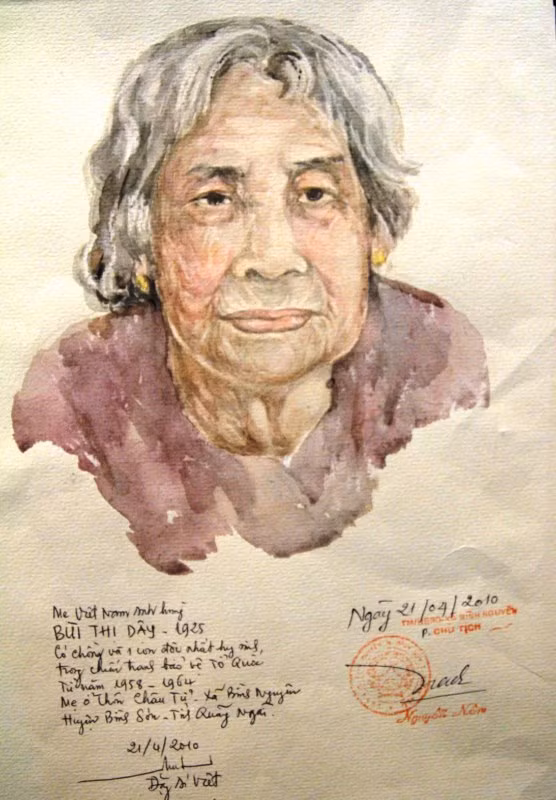 Mẹ Việt Nam anh hùng
BÙI THỊ DÂY - 1925
Có chồng và 1 con độc nhất hy sinh,
trong chiến tranh bảo vệ Tổ Quốc
Từ năm 1958 - 1964
Mẹ ở Thôn Châu Tử - Xã Bình Nguyên
Huyện Bình Sơn - Tỉnh Quảng Ngãi.
21/4/2010
Đặng Ái Việt
Ngày 21/04/2010
BÌNH NGUYÊN
P. CHỦ TỊCH
Nguyễn Năm